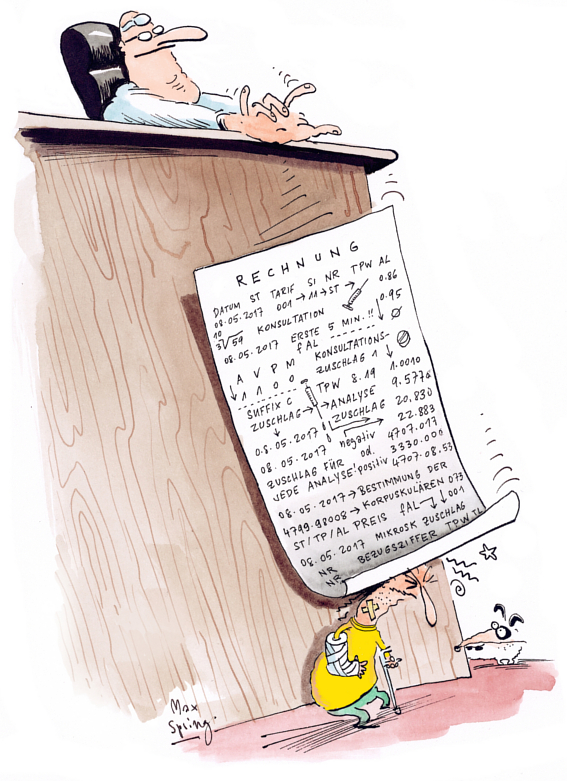 RECHNUNG
DATUM ST TARIF SI NR TPW AL
08.05.2017 001 → 11 → ST → 0.86
10
3√59 KONSULTATION 0.95
08.05.2017 ERSTE 5 MIN.!!
fAL
A V P M KONSULTATIONS-
ZUSCHLAG 1
1 1 0 0 1.0010
SUFFIX C TPW 8.19 9.577
ZUSCHLAG → ANALYSE 20.830
ZUSCHLAG 22.883
08.05.2017
08.05.2017 negativ 4707.017
ZUSCHLAG FÜR od. 3330.00
JEDE ANALYSE! positiv 4707.08.53
08.05.2017 → BESTIMMUNG DER
4799-98008 → KORPUSKULÄREN 079
ST/TP/AL PREIS fAL 001
08.05.2017 MIKROSK ZUSCHLAG
NR BEZUGSZIFFER TPW TL
NR
Max
Spring.